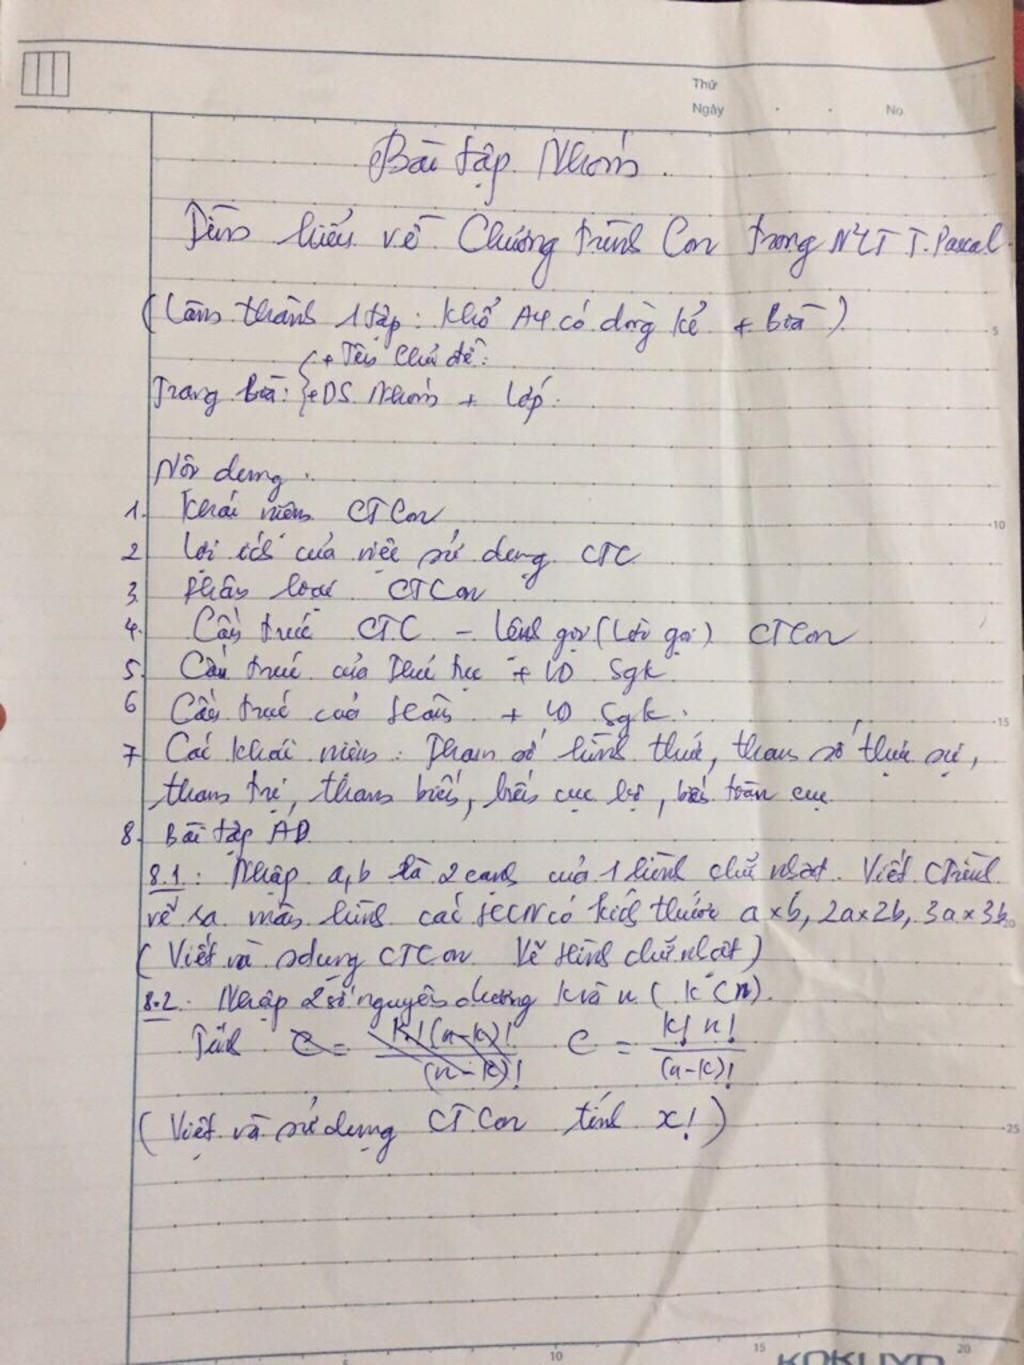 Thứ
Ngày . . No
Bài tập Nhóm.
Tìm hiểu về Chương trình Con trong NLT T.Pascal.
(Làm thành 1 tập: Khổ A4 có dòng kẻ + bìa)
+ Tên Chủ đề:
Trang bìa: + DS Nhóm + Lớp.
Nội dung:
1. Khái niệm CTCon
2 Lợi ích của việc sử dụng CTC
3. Phân loại CTCon
4. Cấu trúc CTC - Lệnh gọi (Lời gọi) CTCon
5. Cấu trúc của Thủ tục + VD Sgk.
6 Cấu trúc của Hàm + VD Sgk.
7 Các khái niệm: Tham số hình thức, tham số thực sự,
tham trị, tham biến, biến cục bộ, biến toàn cục
8. Bài tập ÁD
8.1: Nhập a,b là 2 cạnh của 1 hình chữ nhật. Viết CTrình
vẽ ra màn hình các HCN có kích thước a x b, 2a x 2b, 3a x 3b
(Viết và sdụng CTCon Vẽ Hình chữ nhật)
8.2. Nhập 2 số nguyên dương k và n (k < n).
Tính C = k!(n-k)! / (n-k)! C = k! n! / (n-k)!
(Viết và sử dụng CTCon tính x!)
5
10
15
20
25
5 10 15 20
KOKUYO